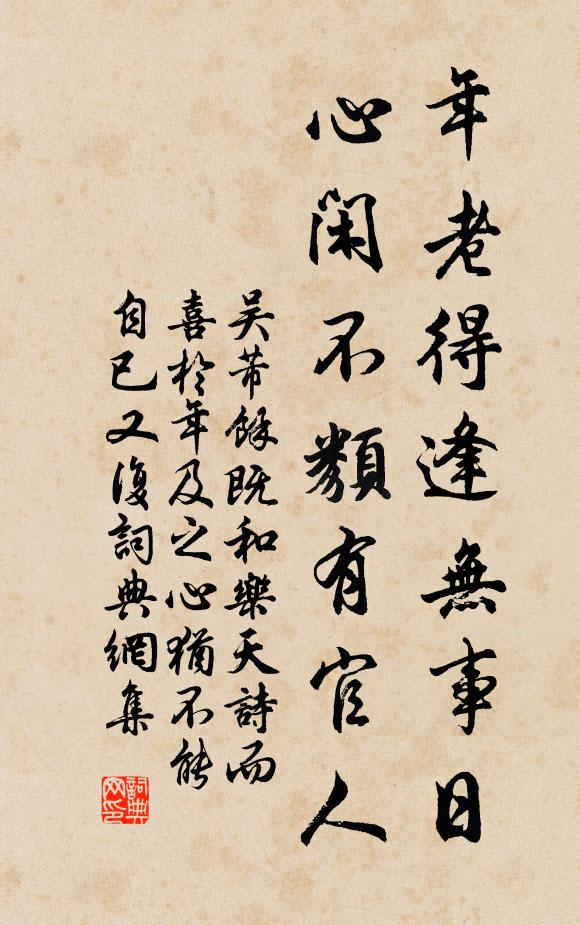 年老得逢無事日
心閑不類有官人
吴芾餘既和樂天詩而
喜於年及之心猶不能
自已又復詞典網集
詞典
网印